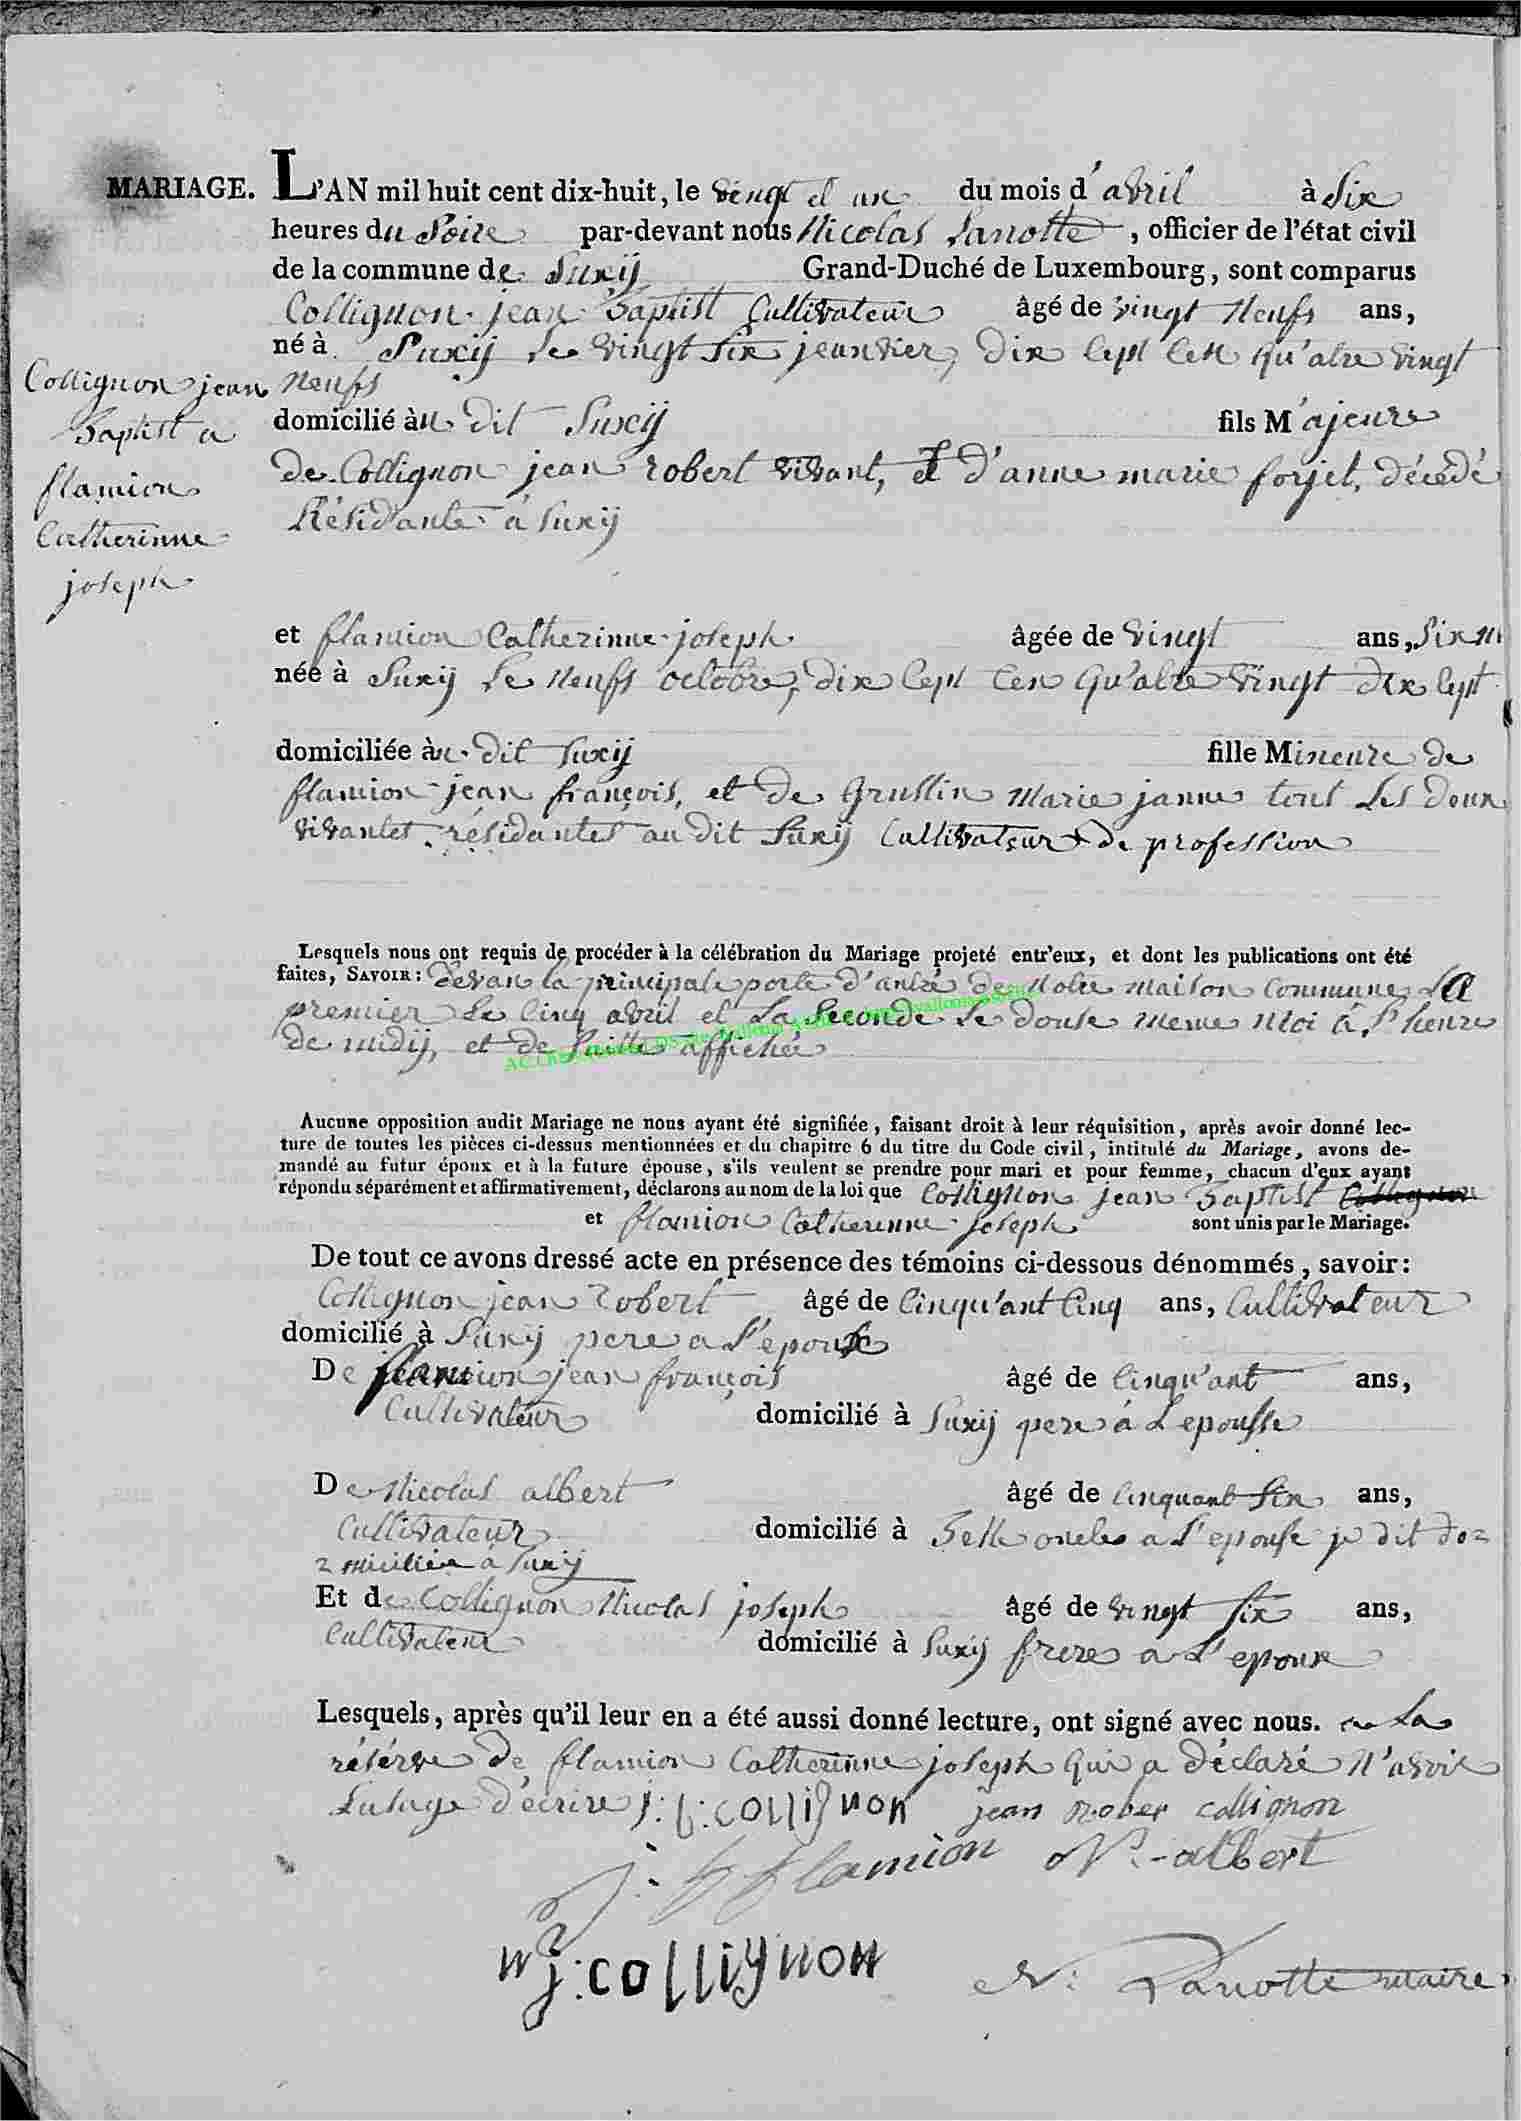 MARIAGE. L'AN mil huit cent dix-huit, le vingt et un du mois d'avril à six
heures du Soire par-devant nous Nicolas Lanotte, officier de l'état civil
de la commune de Suxij Grand-Duché de Luxembourg, sont comparus
Collignon jean Baptist Cultivateur âgé de vingt neufs ans,
né à Suxij Le vingt six jeanvier, dix sept cen qu'atre vingt
neufs
domicilié àu dit Suxij fils M'ajeure
de Collignon jean robert vivant, et d'anne marie forjet, décédé
Résidante à Suxij
Collignon jean
Baptist a
flamion
Catherinne
joseph
et flamion Catherinne joseph âgée de vingt ans, six m
née à Suxij Le neufs octobre, dix sept cen qu'atre vingt dix sept
domiciliée àu dit Suxij fille Mineure de
flamion jean françois, et de Grussin Marie janne tout Les deux
vivantes résidantes au dit Suxij Cultivateur de profession
Lesquels nous ont requis de procéder à la célébration du Mariage projeté entr'eux, et dont les publications ont été
faites, SAVOIR: devan la principale porte d'antré de Notre maison Commune La
premier Le cinq avril et La Seconde Le douse meme moi à l'heure
de midij, et de suitte affichée
Aucune opposition audit Mariage ne nous ayant été signifiée, faisant droit à leur réquisition, après avoir donné lec-
ture de toutes les pièces ci-dessus mentionnées et du chapitre 6 du titre du Code civil, intitulé du Mariage, avons de-
mandé au futur époux et à la future épouse, s'ils veulent se prendre pour mari et pour femme, chacun d'eux ayant
répondu séparément et affirmativement, déclarons au nom de la loi que Collignon jean Baptist Collignon
et flamion Catherinne joseph sont unis par le Mariage.
De tout ce avons dressé acte en présence des témoins ci-dessous dénommés, savoir:
Collignon jean robert âgé de Cinqu'ant Cinq ans, Cultivateur
domicilié à Suxij pere a L'epoux
De flamion jean françois âgé de Cinqu'ant ans,
Cultivateur domicilié à Suxij pere à Lepousse
De Nicolas albert âgé de Cinquant six ans,
Cultivateur domicilié à Belle oncles a L'epouse je dit do=
=micilié a Suxij
Et de Collignon Nicolas joseph âgé de vingt six ans,
Cultivateur domicilié à Suxij frere a L'epoux
Lesquels, après qu'il leur en a été aussi donné lecture, ont signé avec nous. a La
réserve de flamion Catherinne joseph qui a déclaré n'avoir
Lusage d'écrire j: b: collignon jean rober collignon
j: f flamion N: albert
n j: collignon N: Lanotte maire